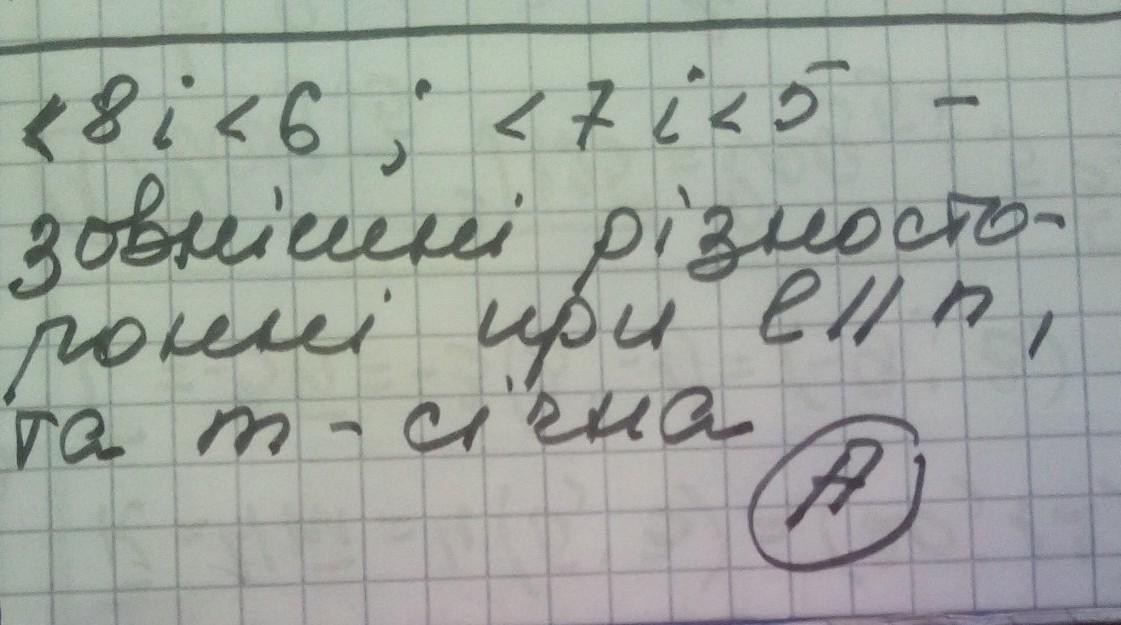 <8 і <6 ; <7 і <5 –
зовнішні різносто-
ронні при l || n ,
та m - січна
А